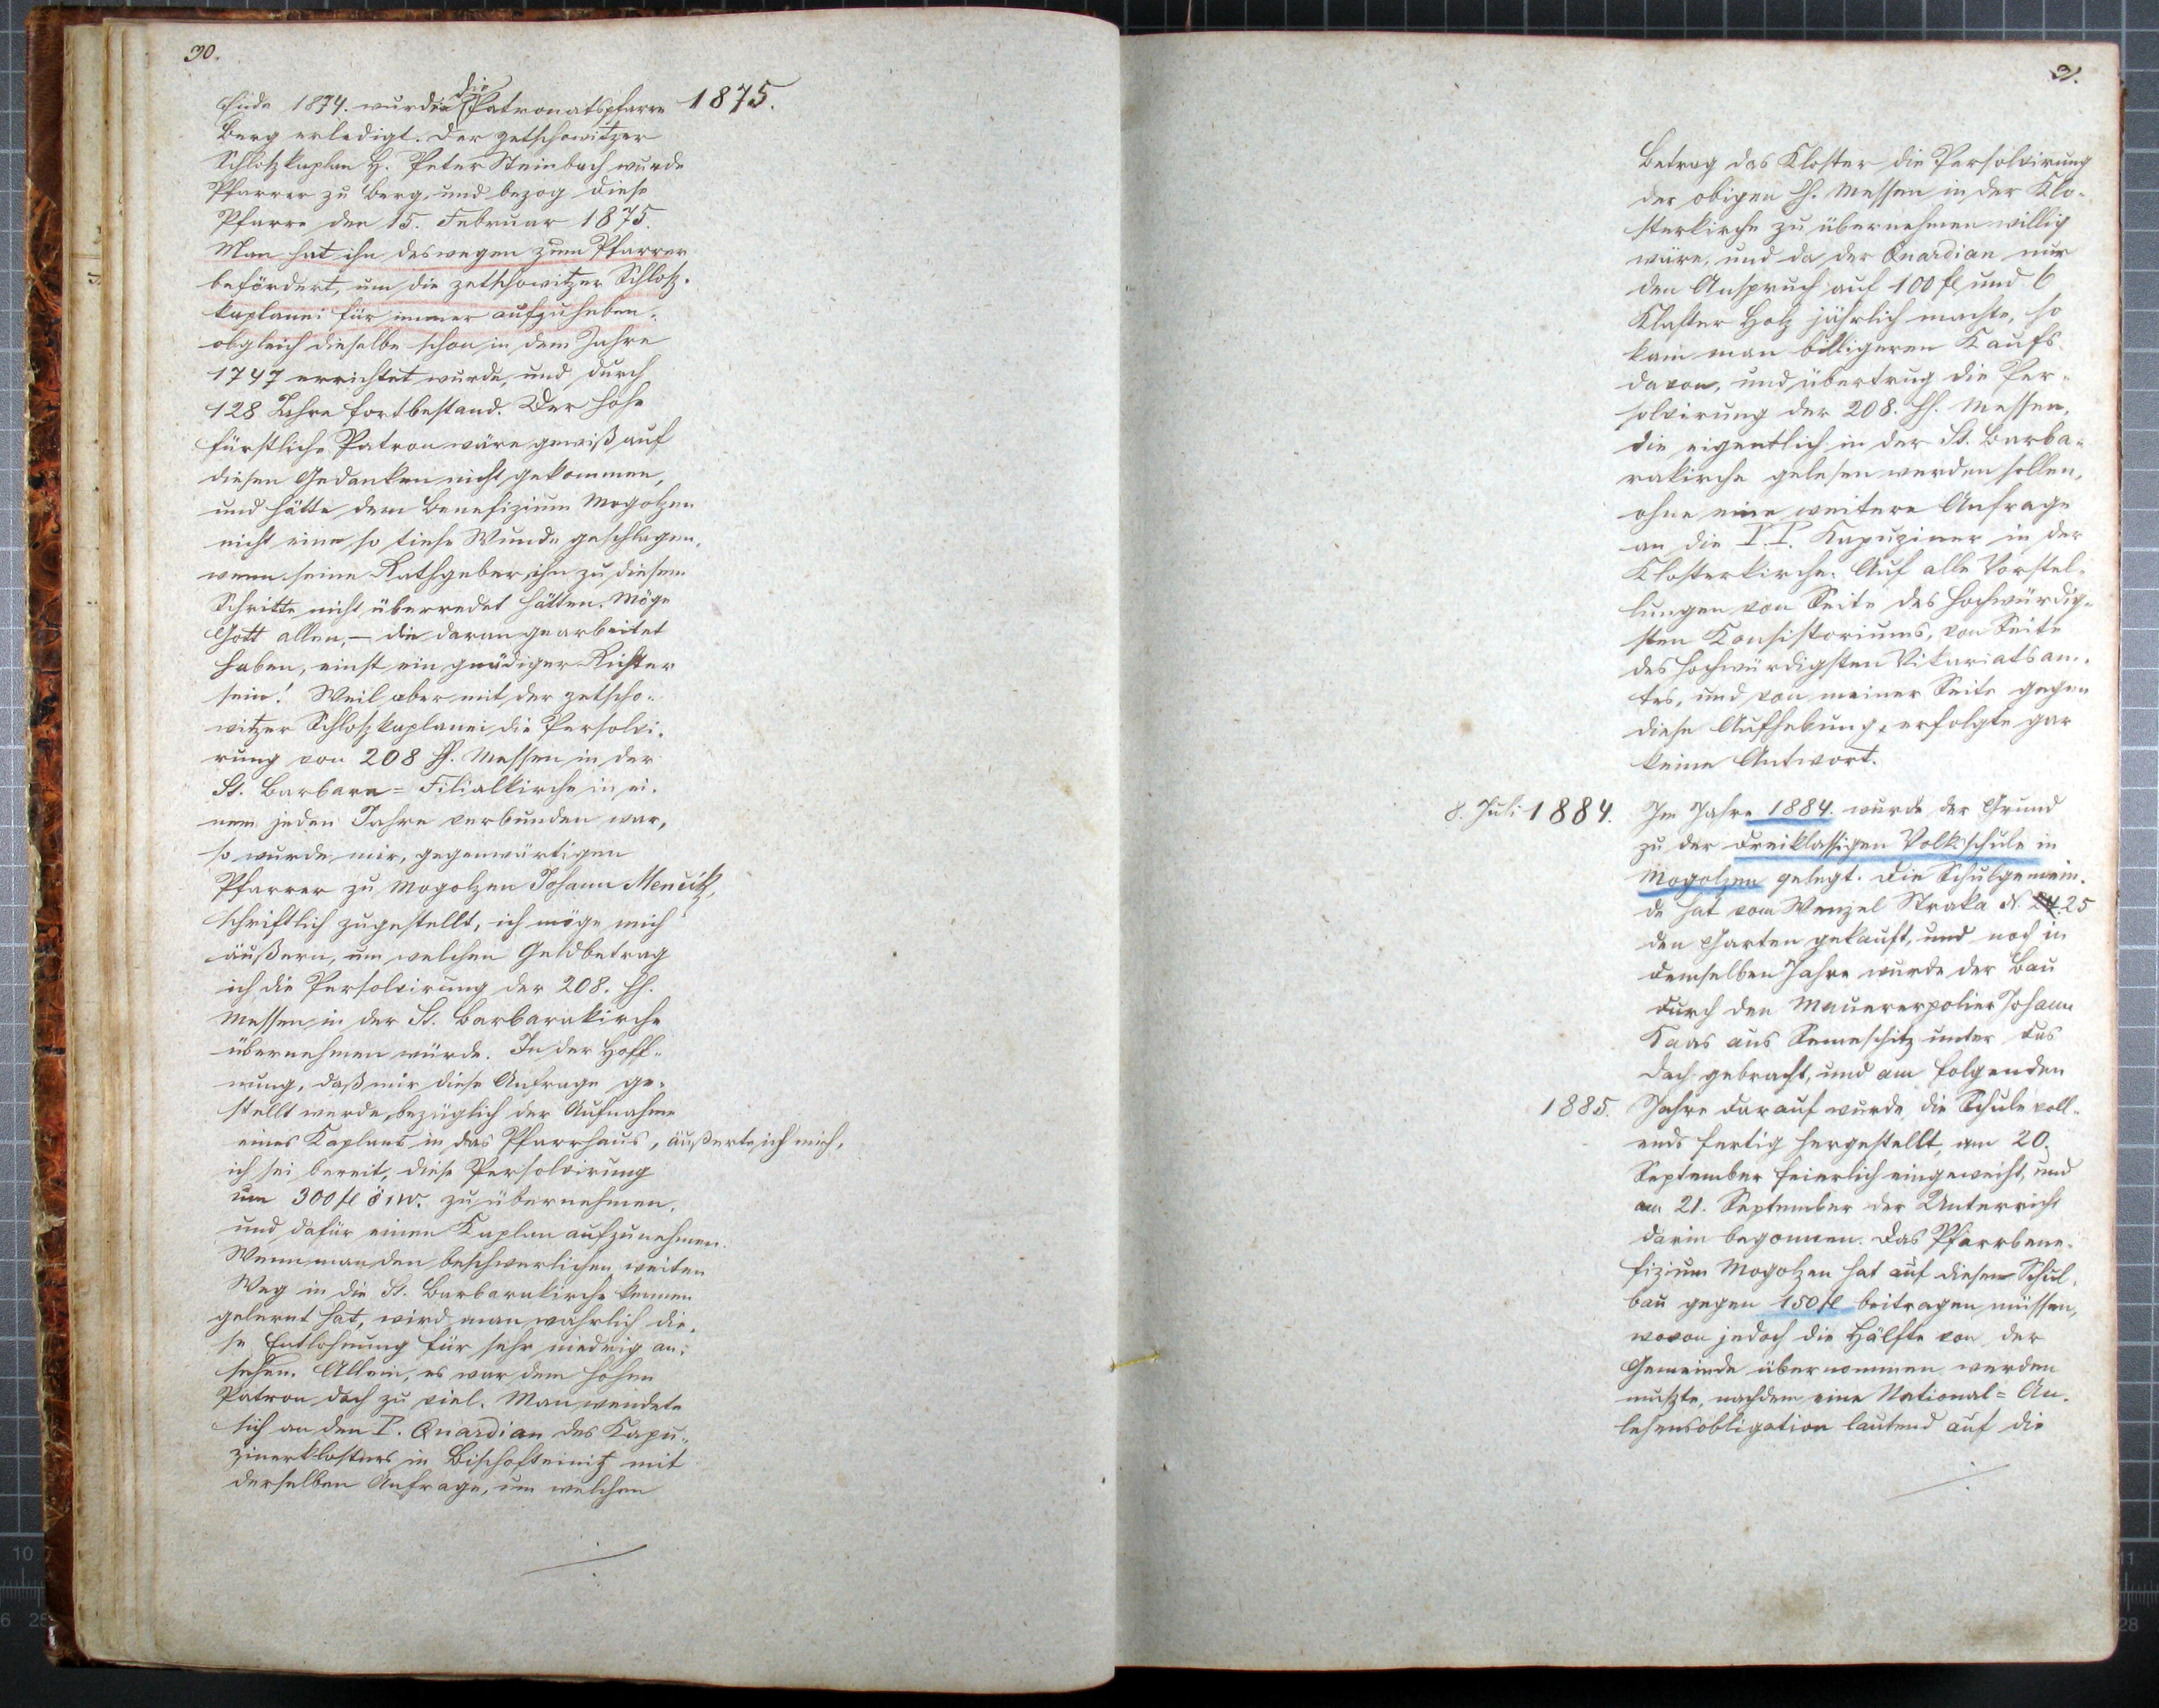 30.
1875.
Ende 1874. wurde die Patronatspfarre
Berg erledigt. Der zetschowitzer
Schloßkaplan H. Peter Steinbach wurde
Pfarrer zu Berg, und bezog diese
Pfarre den 15. Februar 1875.
Man hat ihn deswegen zum Pfarrer
befördert, um die zetschowitzer Schloß-
kaplanei für immer aufzuheben,
obgleich dieselbe schon in dem Jahre
1747 errichtet wurde, und durch
128 Jahre fortbestand. Der hohe
fürstliche Patron wäre gewiß auf
diesen Gedanken nicht gekommen,
und hätte dem Benefizium Mogolzen
nicht eine so tiefe Wunde geschlagen,
wenn seine Rathgeber ihn zu diesem
Schritte nicht überredet hätten. Möge
Gott allen, – die daran gearbeitet
haben, einst ein gnädiger Richter
sein! Weil aber mit der zetscho-
witzer Schloßkaplanei die Persolvi-
rung von 208 hh. Messen in der
St. Barbara = Filialkirche in ei-
nem jeden Jahre verbunden war,
so wurde mir, gegenwärtigen
Pfarrer zu Mogolzen Johann Menčik,
schriftlich zugestellt, ich möge mich
äußern, um welchen Geldbetrag
ich die Persolvirung der 208. hh.
Messen in der St. Barbarakirche
übernehmen würde. In der Hoff-
nung, daß mir diese Anfrage ge-
stellt werde bezüglich der Aufnahme
eines Kaplans in das Pfarrhaus, äußerte ich mich,
ich sei bereit, diese Persolvirung
um 300 fl ö. W. zu übernehmen,
und dafür einen Kaplan aufzunehmen.
Wenn man den beschwerlichen weiten
Weg in die St. Barbarakirche kennen
gelernt hat, wird man wahrlich die-
se Entlohnung für sehr niedrig an-
sehen. Allein, es war dem hohen
Patron doch zu viel. Man wendete
sich an den P. Quardian des Kapu-
zinerklosters in Bischofteinitz mit
derselben Anfrage, um welchen
31.
Betrag das Kloster die Persolvirung
der obigen hh. Messen in der Klo-
sterkirche zu übernehmen willig
wäre, und da der Quardian nur
den Anspruch auf 100 fl und 6
Klafter Holz jährlich machte, so
kam man billigeren Kaufs
davon, und übertrug die Per-
solvirung der 208. hh. Messen,
die eigentlich in der St. Barba-
rakirche gelesen werden sollen,
ohne eine weitere Anfrage
an die P. P. Kapuziner in der
Klosterkirche. Auf alle Vorstel-
lungen von Seite des hochwürdig-
sten Konsistoriums, von Seite
des hochwürdigsten Vikariatsam-
tes, und von meiner Seite gegen
diese Aufhebung, erfolgte gar
keine Antwort.
8. Juli 1884.
Im Jahre 1884. wurde der Grund
zu der dreiklassigen Volksschule in
Mogolzen gelegt. Die Schulgemein-
de hat vom Wenzel Straka N. 25
den Garten gekauft, und noch in
demselben Jahre wurde der Bau
durch den Mauererpolier Johann
Kaas aus Semeschitz unter das
Dach gebracht, und am folgenden
1885.
Jahre darauf wurde die Schule voll-
ends fertig hergestellt, am 20.
September feierlich eingeweiht, und
am 21. September der Unterricht
darin begonnen. Das Pfarrbene-
fizium Mogolzen hat auf diesem Schul-
bau gegen 150 fl beitragen müssen,
wovon jedoch die Hälfte von der
Gemeinde übernommen werden
mußte, nachdem eine National = An-
lehensobligation lautend auf die